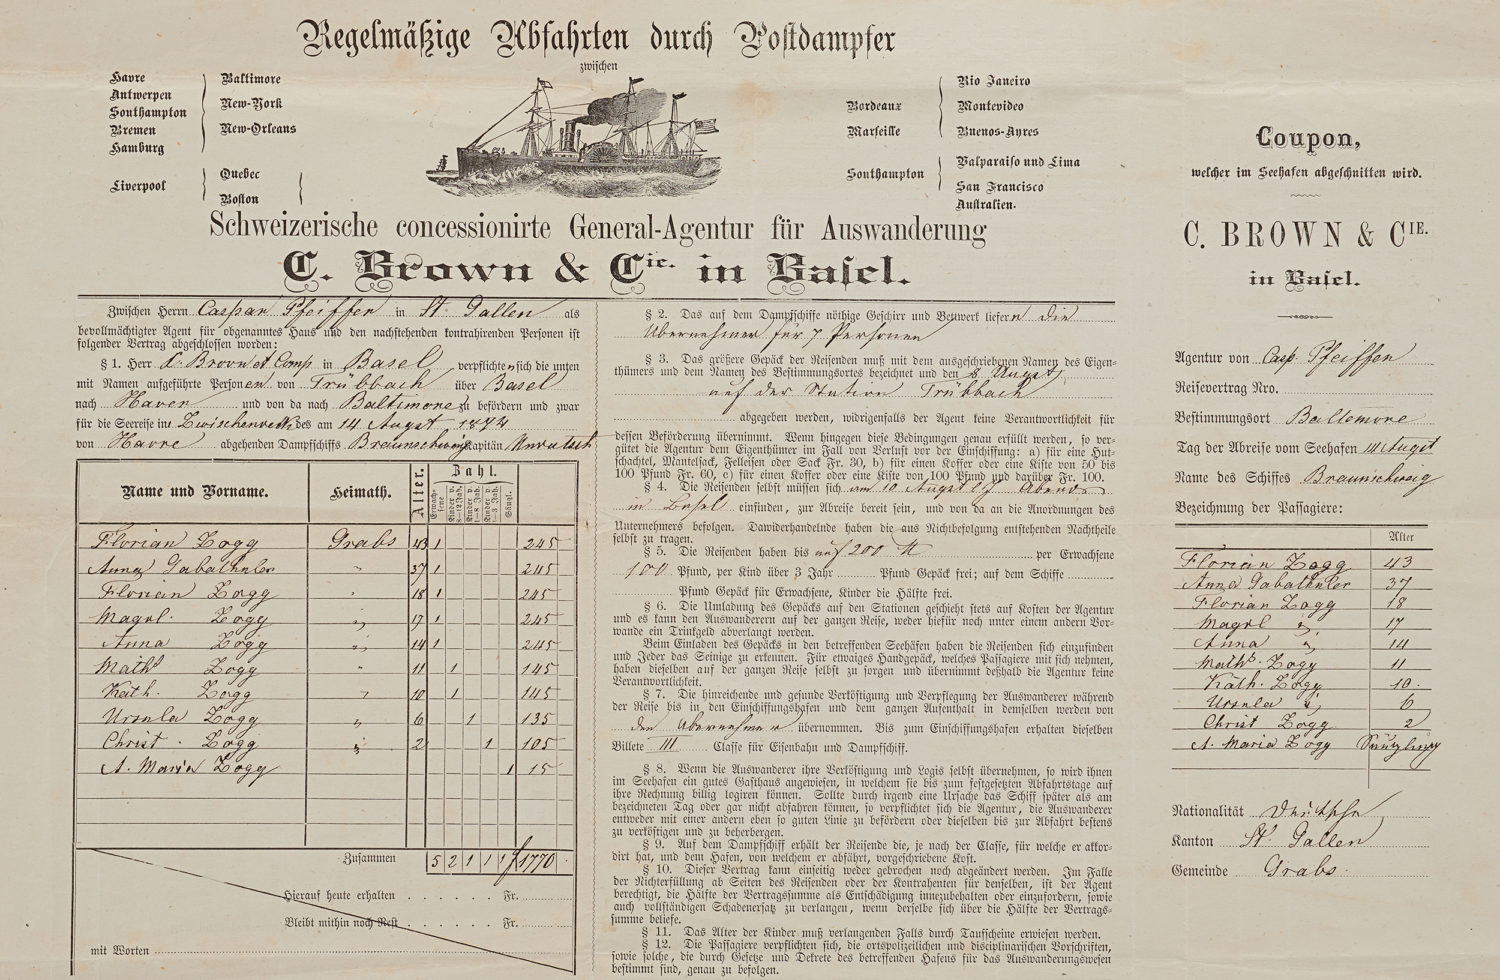 Regelmäßige Abfahrten durch Postdampfer
zwischen
Havre
Antwerpen
Southampton
Bremen
Hamburg
Baltimore
New-York
New-Orleans
Liverpool
Quebec
Boston
Bordeaux
Marseille
Rio Janeiro
Montevideo
Buenos-Ayres
Southampton
Valparaiso und Lima
San Francisco
Australien.
Schweizerische concessionirte General-Agentur für Auswanderung
C. Brown & Cie. in Basel.
Zwischen Herrn Caspar Pfeiffer in St. Gallen als
bevollmächtigter Agent für obgenanntes Haus und den nachstehenden kontrahirenden Personen ist
folgender Vertrag abgeschlossen worden:
§ 1. Herr C. Brown et Comp in Basel verpflichten sich die unten
mit Namen aufgeführte Personen von Trübbach über Basel
nach Haver und von da nach Baltimore zu befördern und zwar
für die Seereise ins Zwischendeck des am 14. Augst 1874
von Havre abgehenden Dampfschiffs Braunschweig Kapitän
Name und Vorname. Heimath. Alter. Zahl.
Erwachsene Kinder v. 8–12 Jah. Kinder v. 1–8 Jah. Kinder v. 1–3 Jah. Säugl.
Florian Zogg Grabs 43 1 245
Anna Gabathuler " 37 1 245
Florian Zogg " 18 1 245
Magd. Zogg " 17 1 245
Anna Zogg " 14 1 245
Maths Zogg " 11 1 145
Kath. Zogg " 10 1 145
Ursula Zogg " 6 1 135
Christ. Zogg " 2 1 105
A. Maria Zogg 1 15
Zusammen 5 2 1 1 1 f 1770
Hierauf heute erhalten . . . . . . Fr.
Bleibt mithin noch Rest . . . . . . Fr.
mit Worten
§ 2. Das auf dem Dampfschiffe nöthige Geschirr und Bettwerk liefern die
Übernehmer für 7 Personen
§ 3. Das größere Gepäck der Reisenden muß mit dem ausgeschriebenen Namen des Eigen-
thümers und dem Namen des Bestimmungsortes bezeichnet und den 8 Augst
auf der Station Trübbach
abgegeben werden, widrigenfalls der Agent keine Verantwortlichkeit für
dessen Beförderung übernimmt. Wenn hingegen diese Bedingungen genau erfüllt werden, so ver-
gütet die Agentur dem Eigenthümer im Fall von Verlust vor der Einschiffung: a) für eine Hut-
schachtel, Mantelsack, Felleisen oder Sack Fr. 30, b) für einen Koffer oder eine Kiste von 50 bis
100 Pfund Fr. 60, c) für einen Koffer oder eine Kiste von 100 Pfund und darüber Fr. 100.
§ 4. Die Reisenden selbst müssen sich am 10 Augst Abends
in Basel einfinden, zur Abreise bereit sein, und von da an die Anordnungen des
Unternehmers befolgen. Dawiderhandelnde haben die aus Nichtbefolgung entstehenden Nachtheile
selbst zu tragen.
§ 5. Die Reisenden haben bis auf 200 ℔ per Erwachsene
100 Pfund, per Kind über 3 Jahr Pfund Gepäck frei; auf dem Schiffe
Pfund Gepäck für Erwachsene, Kinder die Hälfte frei.
§ 6. Die Umladung des Gepäcks auf den Stationen geschieht stets auf Kosten der Agentur
und es kann den Auswanderern auf der ganzen Reise, weder hiefür noch unter einem andern Vor-
wande ein Trinkgeld abverlangt werden.
Beim Einladen des Gepäcks in den betreffenden Seehäfen haben die Reisenden sich einzufinden
und Jeder das Seinige zu erkennen. Für etwaiges Handgepäck, welches Passagiere mit sich nehmen,
haben dieselben auf der ganzen Reise selbst zu sorgen und übernimmt deßhalb die Agentur keine
Verantwortlichkeit.
§ 7. Die hinreichende und gesunde Verköstigung und Verpflegung der Auswanderer während
der Reise bis in den Einschiffungshafen und dem ganzen Aufenthalt in demselben werden von
den Übernehmer übernommen. Bis zum Einschiffungshafen erhalten dieselben
Billete III Classe für Eisenbahn und Dampfschiff.
§ 8. Wenn die Auswanderer ihre Verköstigung und Logis selbst übernehmen, so wird ihnen
im Seehafen ein gutes Gasthaus angewiesen, in welchem sie bis zum festgesetzten Abfahrtstage auf
ihre Rechnung billig logiren können. Sollte durch irgend eine Ursache das Schiff später als am
bezeichneten Tag oder gar nicht abfahren können, so verpflichtet sich die Agentur, die Auswanderer
entweder mit einer andern eben so guten Linie zu befördern oder dieselben bis zur Abfahrt bestens
zu verköstigen und zu beherbergen.
§ 9. Auf dem Dampfschiff erhält der Reisende die, je nach der Classe, für welche er akkor-
dirt hat, und dem Hafen, von welchem er abfährt, vorgeschriebene Kost.
§ 10. Dieser Vertrag kann einseitig weder gebrochen noch abgeändert werden. Im Falle
der Nichterfüllung ab Seiten des Reisenden oder der Kontrahenten für denselben, ist der Agent
berechtigt, die Hälfte der Vertragssumme als Entschädigung innezubehalten oder einzufordern, sowie
auch vollständigen Schadenersatz zu verlangen, wenn derselbe sich über die Hälfte der Vertrags-
summe beliefe.
§ 11. Das Alter der Kinder muß verlangenden Falls durch Taufscheine erwiesen werden.
§ 12. Die Passagiere verpflichten sich, die ortspolizeilichen und disciplinarischen Vorschriften,
sowie solche, die durch Gesetze und Dekrete des betreffenden Hafens für das Auswanderungswesen
bestimmt sind, genau zu befolgen.
Coupon,
welcher im Seehafen abgeschnitten wird.
C. BROWN & CIE.
in Basel.
Agentur von Casp. Pfeiffer
Reisevertrag Nro.
Bestimmungsort Baltemore
Tag der Abreise vom Seehafen 14 Augst
Name des Schiffes Braunschweig
Bezeichnung der Passagiere:
Alter
Florian Zogg 43
Anna Gabathuler 37
Florian Zogg 18
Magd " 17
Anna " 14
Maths. Zogg 11
Käth. Zogg 10.
Ursula " 6
Christ Zogg 2
A. Maria Zogg Säugling
Nationalität Deutsche
Kanton St. Gallen
Gemeinde Grabs.